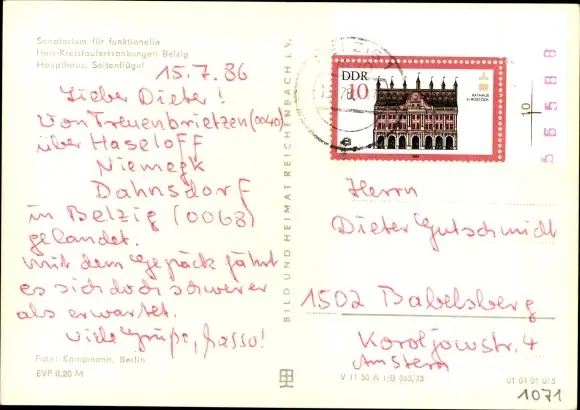 Sanatorium für funktionelle
Herz-Kreislauferkrankungen Belzig
Haupthaus, Seitenflügel
15.7.86
Lieber Dieter!
Von Treuenbrietzen (0040)
über Haseloff
Niemegk
Dahnsdorf
in Belzig (0068)
gelandet.
Mit dem Gepäck fährt
es sich doch schwerer
als erwartet.
Viele Grüße, Hasso!
Foto: Kampmann, Berlin
EVP 0,20 M
BILD UND HEIMAT REICHENBACH i. V.
BELZIG
DDR
10
RATHAUS
IN ROSTOCK
10
5 5 5 8 8
Herrn
Dieter Gutschmidt
1502 Babelsberg
Karoljowstr. 4
Am Stern
V 11 50 A 1/B 065/75
01 04 01 015
1071